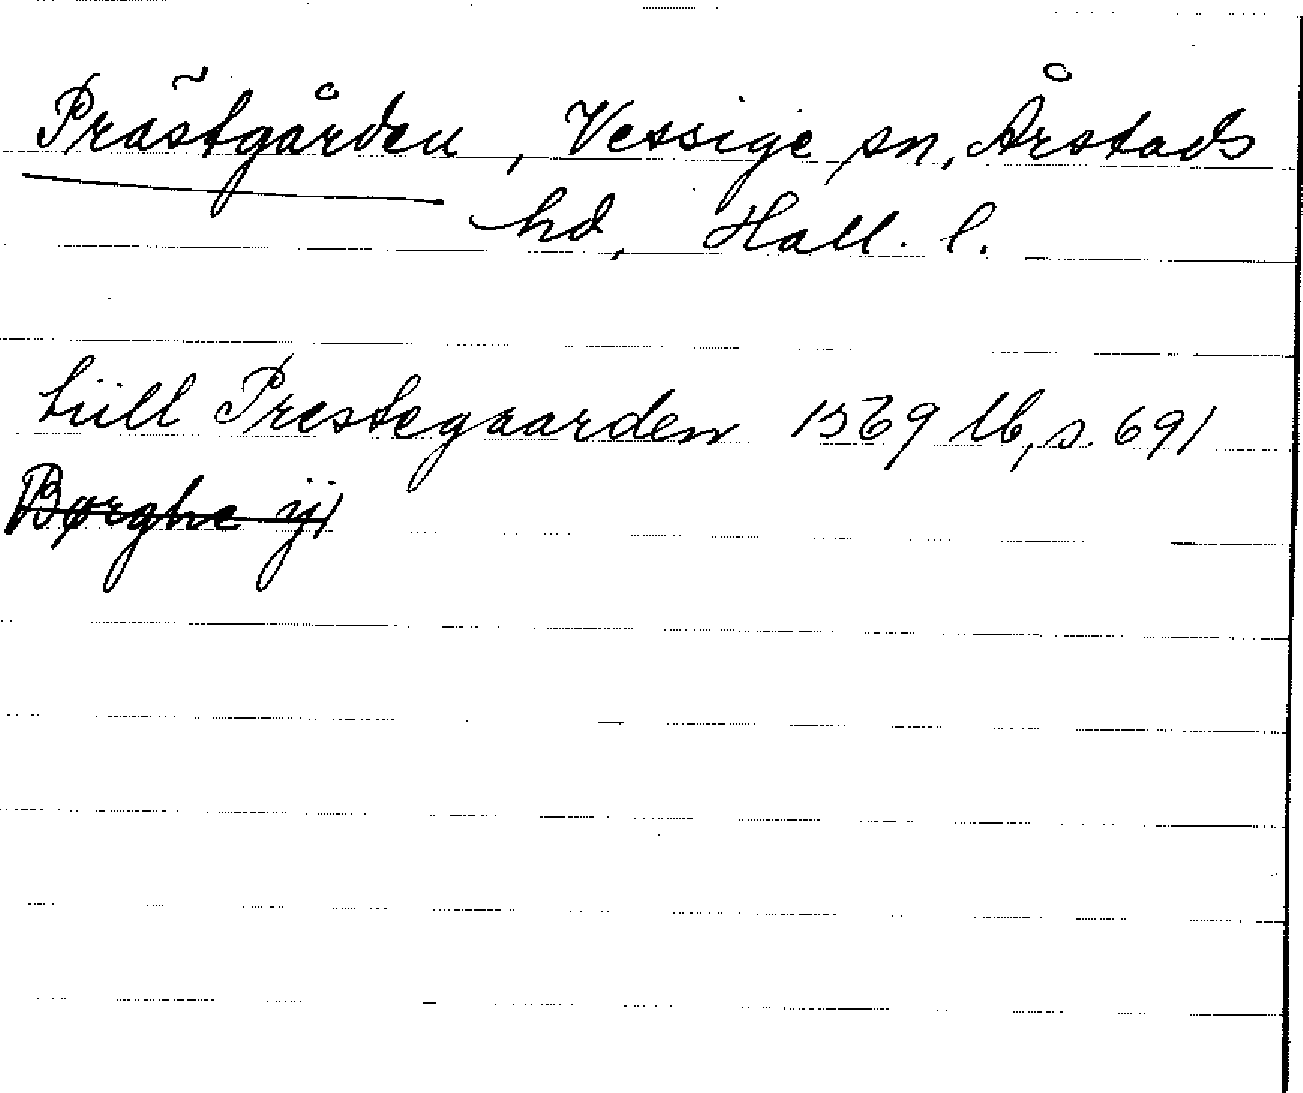 Prästgården, Vessige sn, Årstads
hd, Hall. l.
tiill Prestegaarden 1569 lb, s. 691
Børghe ij